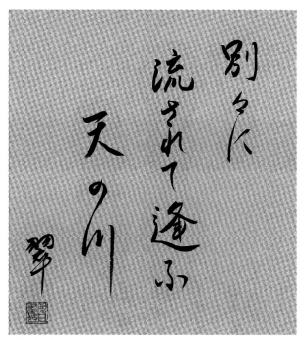 別々に
流されて逢ふ
天の川
翠